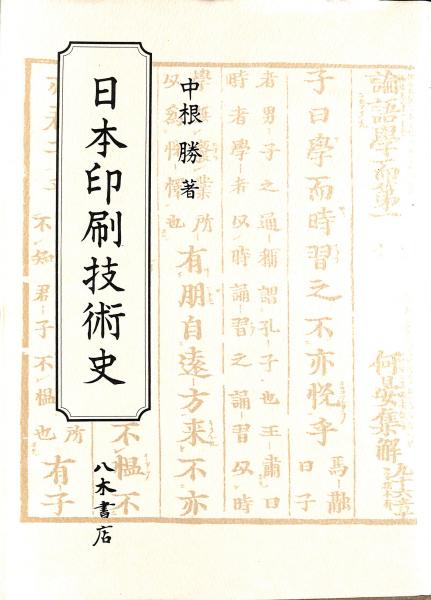 日本印刷技術史
中根 勝 著
八木書店
論語學而第一
何晏集解
子曰學而時習之不亦悦乎
馬融
曰子
者男子之通稱謂孔子也王肅曰
時者學者以時誦習之誦習以時
學
業
所
以
有朋自遠方来不亦
不愠不
不知君子不愠也
所
有子